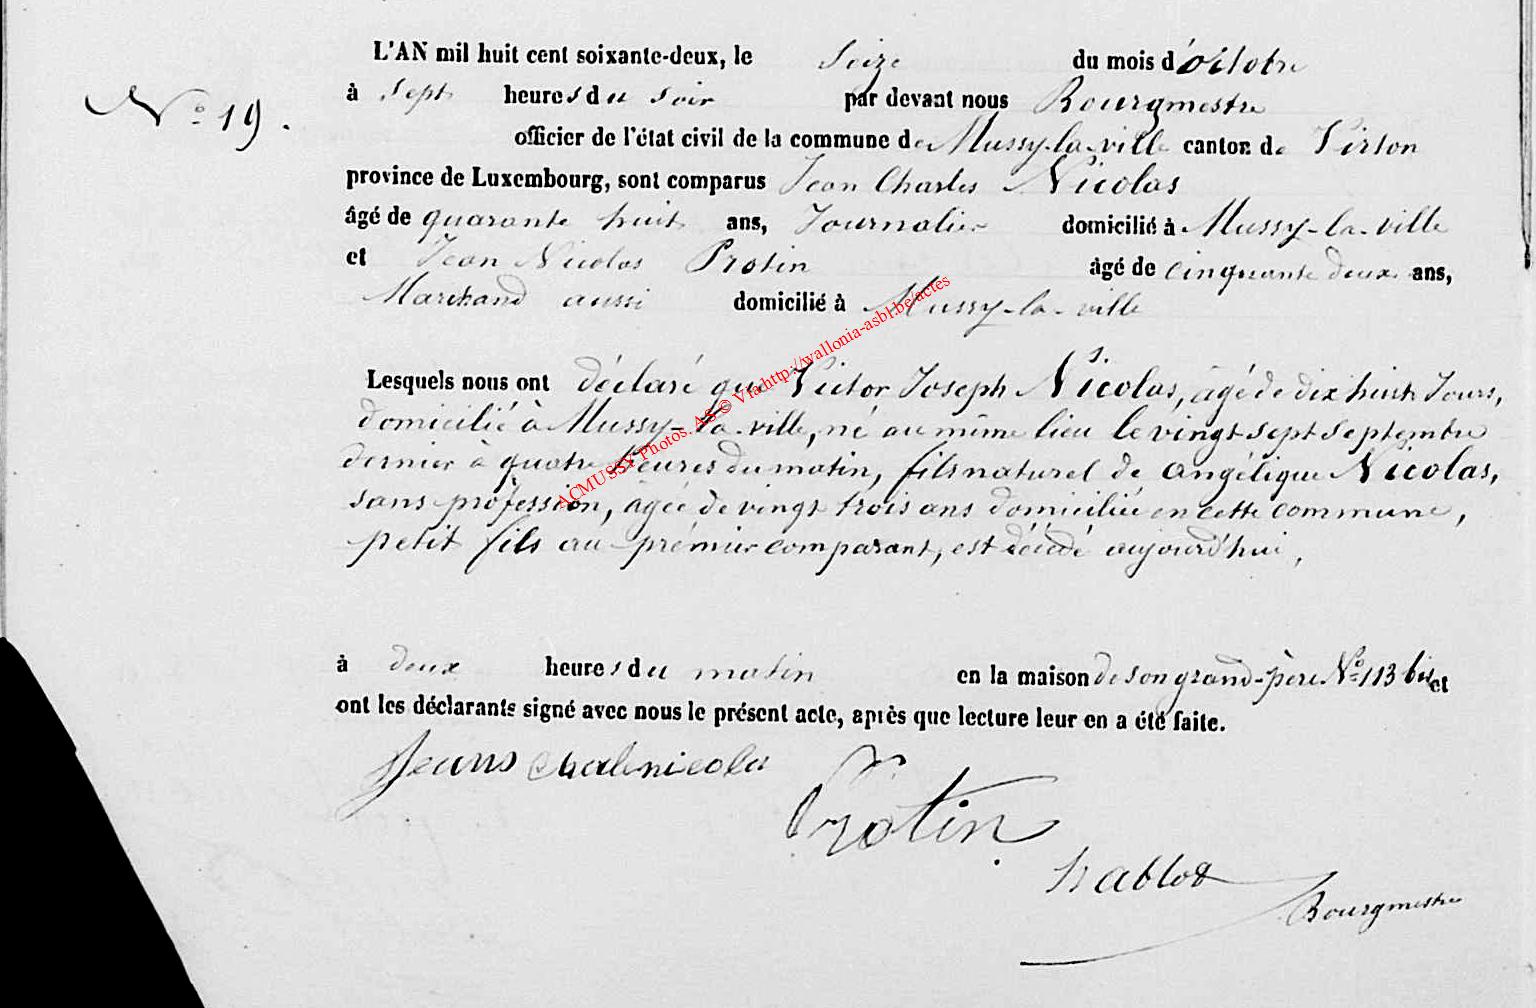 L'AN mil huit cent soixante-deux, le Seize du mois d'octobre
N° 19.
à Sept heures du soir par devant nous Bourgmestre
officier de l'état civil de la commune de Mussy-la-ville canton de Virton
province de Luxembourg, sont comparus Jean Charles Nicolas
âgé de quarante huit ans, Journalier domicilié à Mussy-la-ville
et Jean Nicolas Protin âgé de cinquante deux ans,
Marchand aussi domicilié à Mussy-la-ville
Lesquels nous ont déclaré que Victor Joseph Nicolas, âgé de dix huit Jours,
domicilié à Mussy-la-ville, né au même lieu le vingt sept septembre
dernier à quatre heures du matin, fils naturel de angélique Nicolas,
sans profession, âgée de vingt trois ans domiciliée en cette commune,
petit fils au prémier comparant, est décédé aujourd'hui,
à deux heures du matin en la maison de son grand-père N° 113 bis et
ont les déclarants signé avec nous le présent acte, après que lecture leur en a été faite.
Protin
Bourgmestre
ACMUSSY Photos. AS © Via http://wallonia-asbl.be/actes